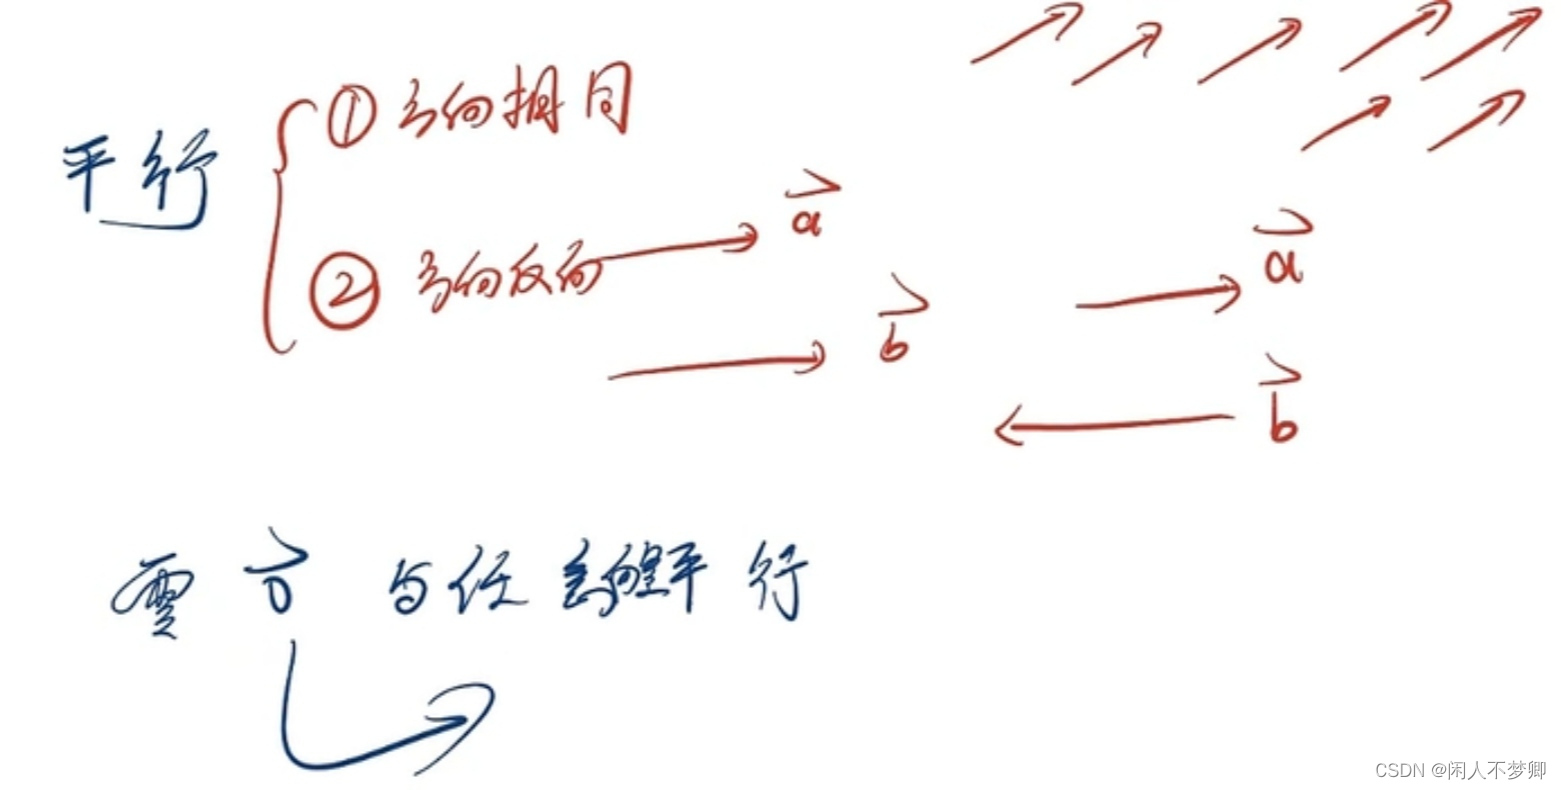 平行
① 方向相同
② 方向反向
a
b
a
b
零 0 与任意向量平行
CSDN @闲人不梦卿